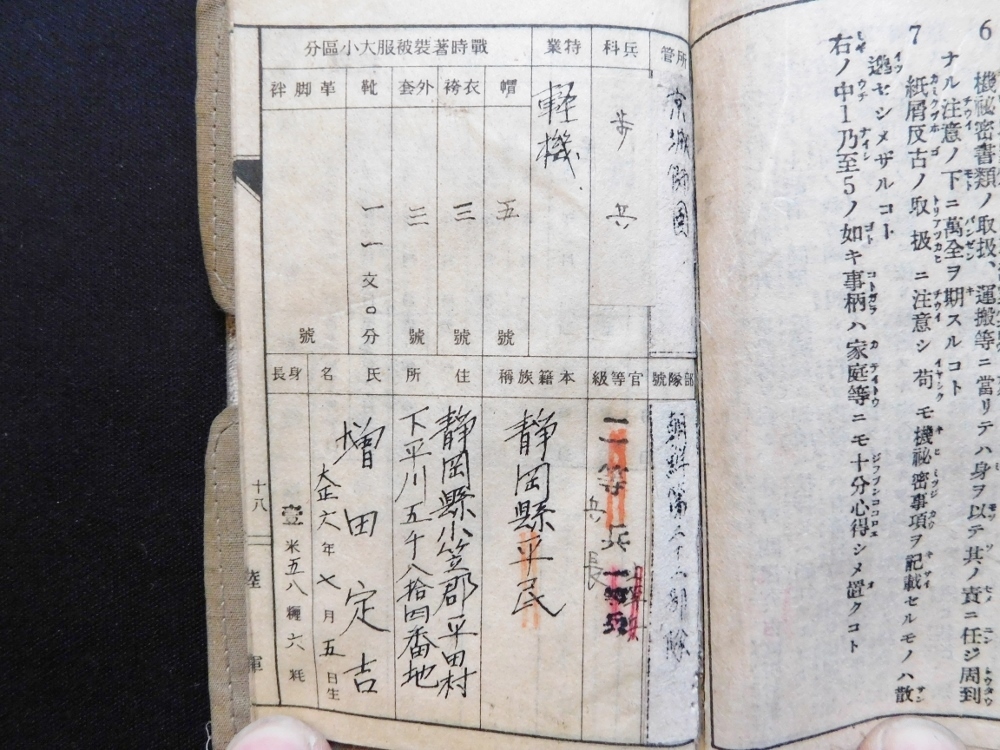 6
機祕密書類ノ取扱、運搬等ニ當リテハ身ヲ以テ其ノ責ニ任ジ周到
ナル注意ノ下ニ萬全ヲ期スルコト
7
紙屑反古ノ取扱ニ注意シ苟モ機祕密事項ヲ記載セルモノハ散
逸セシメザルコト
右ノ中1乃至5ノ如キ事柄ハ家庭等ニモ十分心得シメ置クコト
所管
京城師團
部隊號
兵科
歩兵
官等級
二等兵
兵長
特業
軽機
本籍族稱
靜岡縣平民
戰時著裝被服大小區分
帽
五號
衣袴
三號
外套
三號
靴
一一文〇分
革脚絆
號
住所
靜岡縣小笠郡平田村
下平川五千八拾四番地
氏名
增田定吉
大正六年七月五日生
身長
壹米五八糎六粍
十八
陸軍